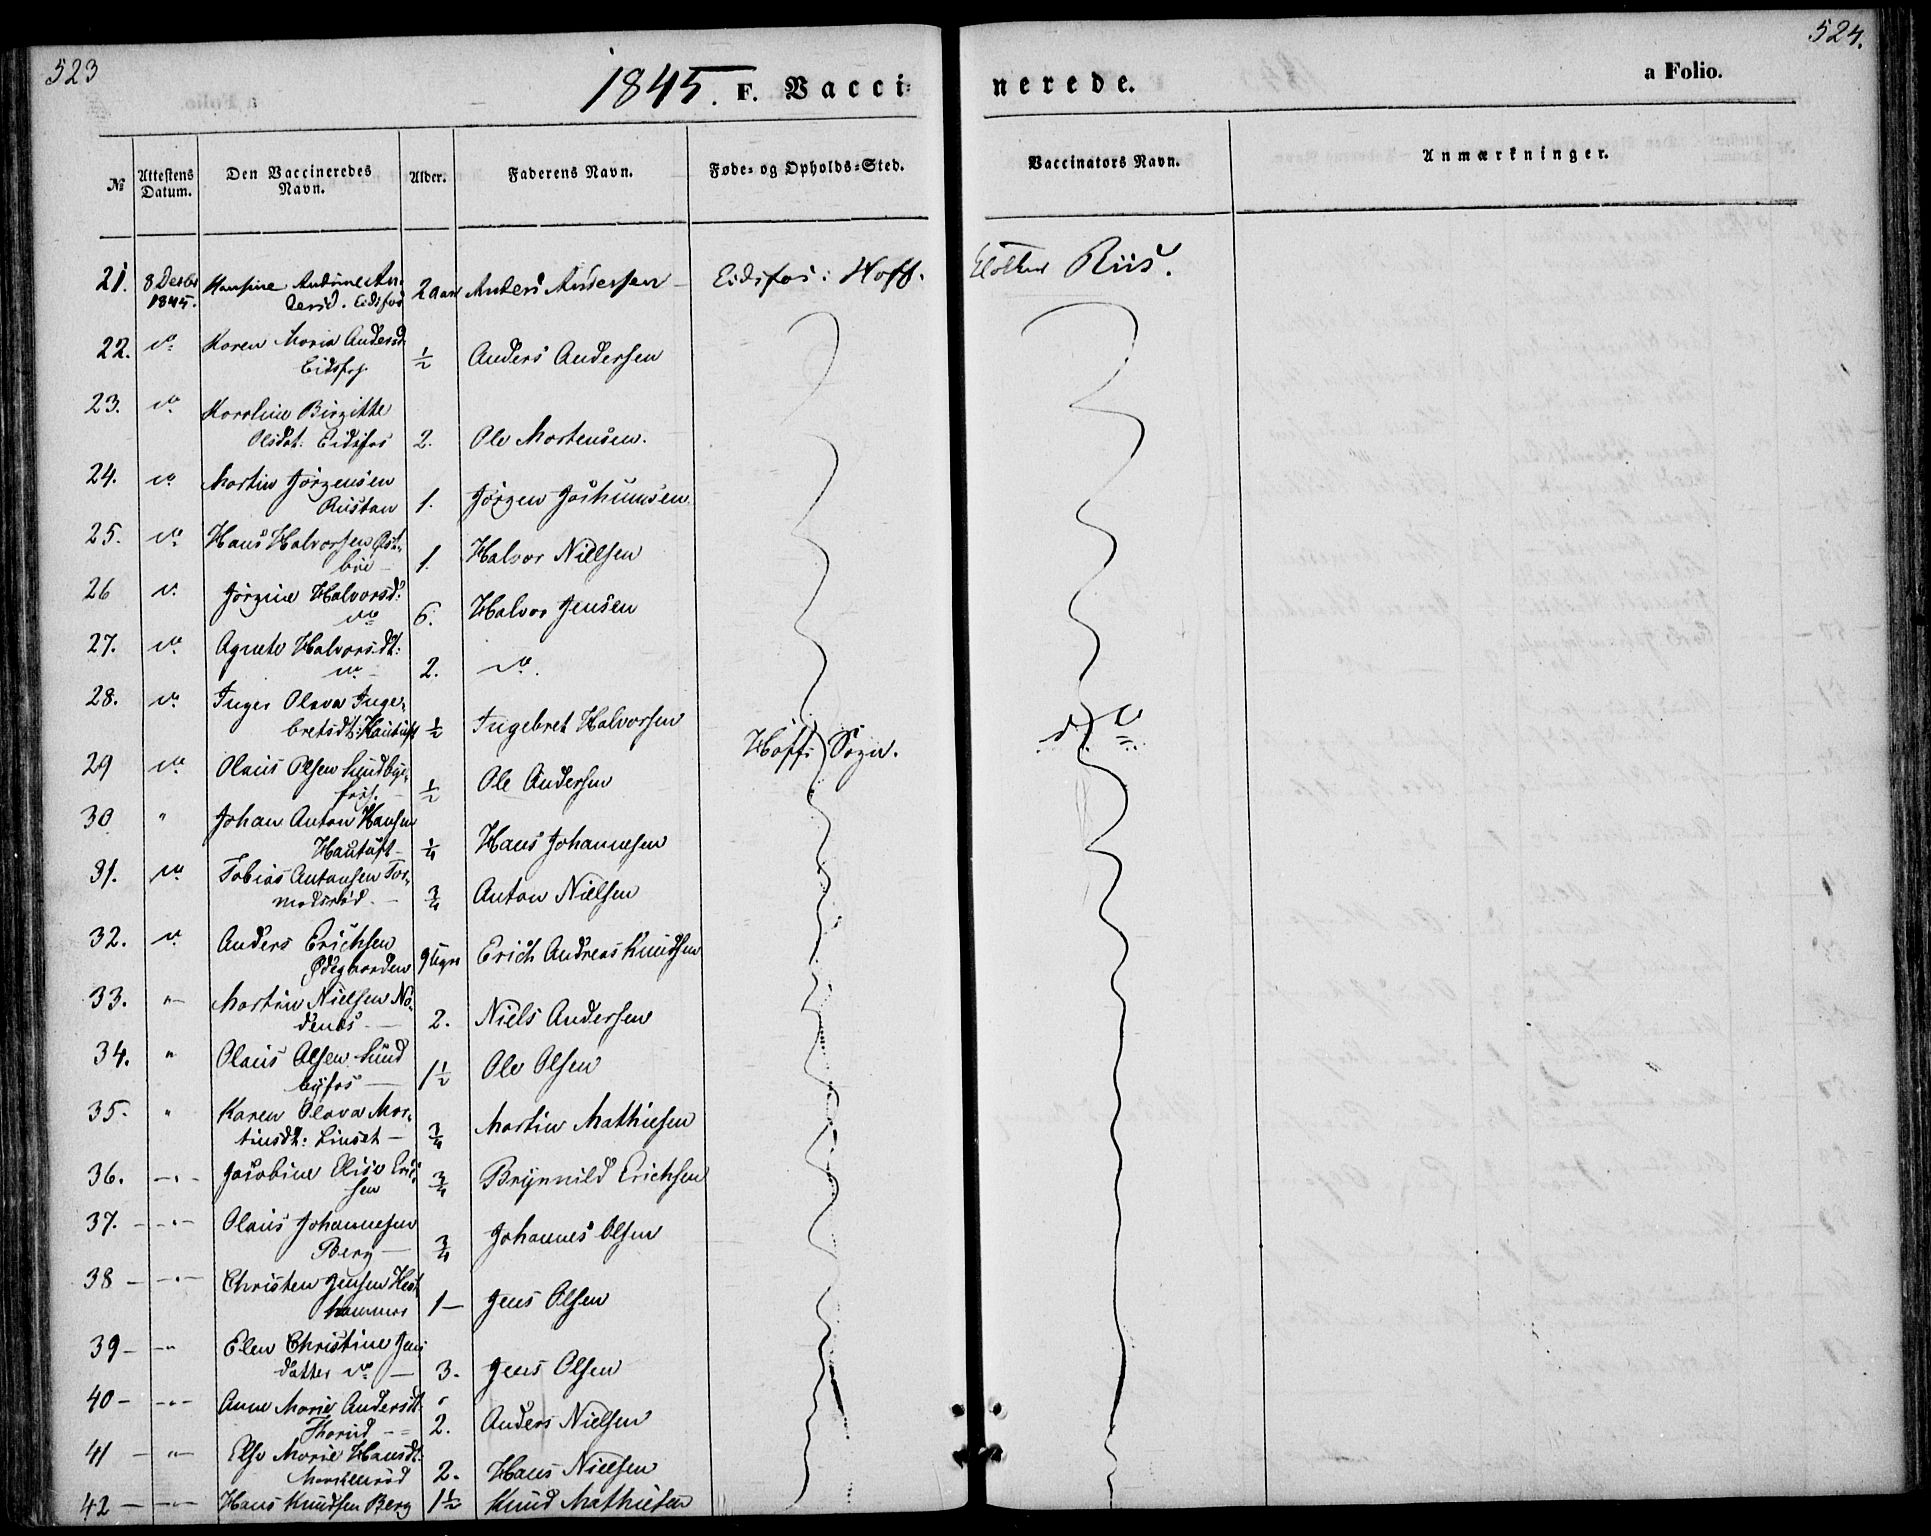 523
524.
1845. F. Vacci-
nerede.
a Folio.
№
Attestens
Datum.
Den Vaccineredes
Navn.
Alder.
Faderens Navn.
Føde- og Opholds-Sted.
Vaccinators Navn.
Anmærkninger.
21. 8 Decbr Hansine Andrine An-
1845. dersd. Eidsfos 2 aar Anders Andersen Eidsfos: Hoff. Riis.
22. do Karen Maria Andersd
Eidsfos ½ Anders Andersen
23. do Karoline Birgitte
Olsdat: Eidsfos 2. Ole Mortensen.
24. do Martin Jörgensen
Rustan 1. Jörgen
25. do Hans Halvorsen Øst-
böe 1. Halvor Nielsen
26 do Jörgine Halvorsd:
do 6. Halvor Jensen
27. do Agnete Halvorsdt:
do 2. do.
28. do Inger Olava Inge-
bretsdt: Hautuft ½ Ingebret Halvorsen
Hoff: Sogn. do
29 do Olaus Olsen Sundbye-
fos. ½ Ole Andersen
30 " Johan Anton Hansen
Hautuft ¼ Hans Johannesen
31. do Tobias Antonsen Tor-
modsröd. ¾ Anton Nielsen
32. do Anders Erichsen
Ødegaarden 9 Uger Erich Andreas Knudsen
33. " Martin Nielsen Nö-
denæs 2. Niels Andersen
34. " Olaus Olsen Sund
byfos 1½ Ole Olsen
35. " Karen Olava Mar-
tinsdt: Linset ¾ Martin Mathiesen
36. " Jacobine Elise Erich-
sen ¾ Brynnild Erichsen
37. " Olaus Johannesen
Berg ¾ Johannes Olsen
38 " Christen Jensen Hest
hammer 1 Jens Olsen
39 " Elen Christine Jens
datter do 3. Jens Olsen
40 " Anne Marie Andersdt
Thorud 2. Anders Nielsen
41 " Else Marie Hansdt:
2. Hans Nielsen
42 " Hans Knudsen Berg 1½ Knud Mathiesen